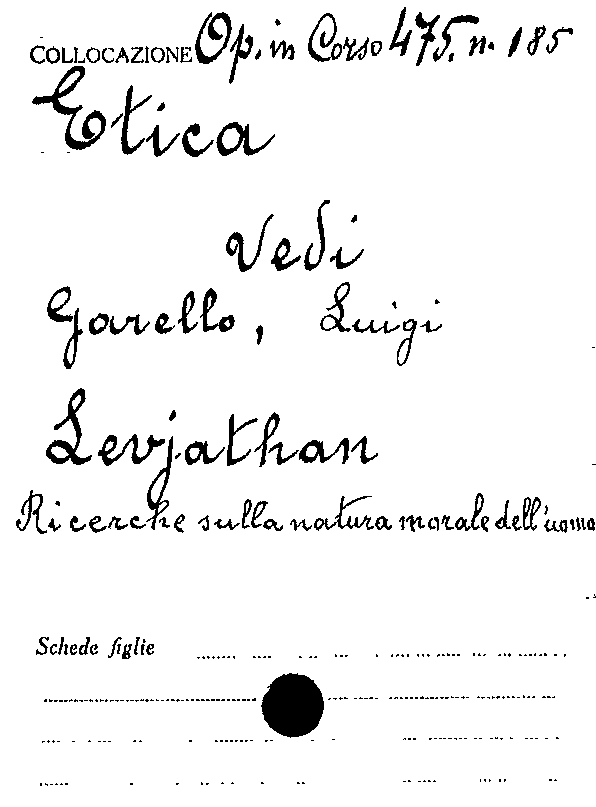 COLLOCAZIONE Op. in Corso 475. n. 185
Etica
Vedi
Garello, Luigi
Levjathan
Ricerche sulla natura morale dell'uomo
Schede figlie